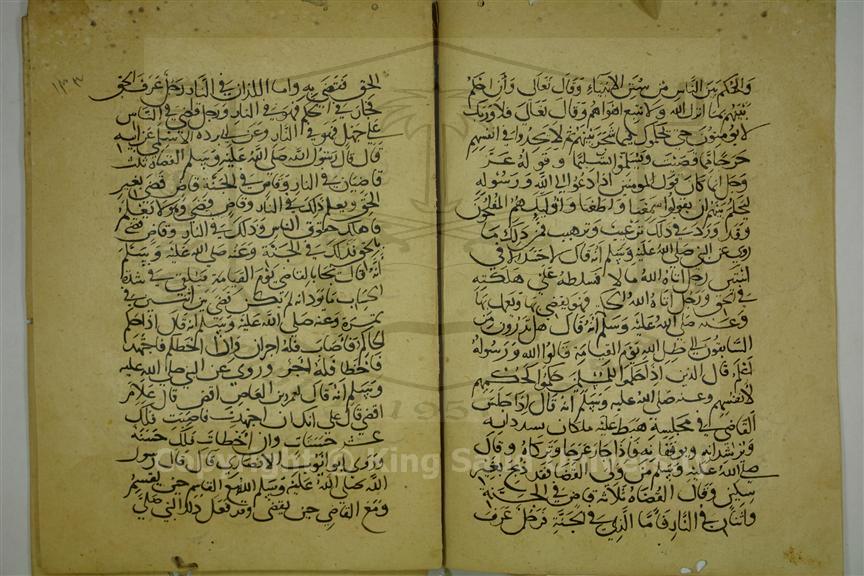 والحكم بين الناس من سنن الانبياء وقال تعالى وأن احكم
بينهم بما انزل الله ولا تتبع اهواءهم وقال تعالى فلا وربك
لا يؤمنون حتى يحكموك فيما شجر بينهم ثم لا يجدوا في انفسهم
حرجا مما قضيت ويسلموا تسليما وقوله عز
وجل انما كان قول المومنين اذا دعوا الى الله ورسوله
ليحكم بينهم ان يقولوا سمعنا واطعنا واوليك هم المفلحون
وقد ورد في ذلك ترغيب وترهيب فمن ذلك ما
روي عن النبي صلى الله عليه وسلم أنه قال لا حسد الا في
اثنتين رجل اتاه الله مالا فسلطه على هلكته
في الحق ورجل اتاه الله الحكمة فهو يقضي بها ويعمل بها
وعنه صلى الله عليه وسلم أنه قال هل تدرون من
السابقون الى ظل الله يوم القيامة قالوا الله ورسوله
اعلم قال الذين اذا حكموا للناس حكموا كحكمهم
لانفسهم وعنه صلى الله عليه وسلم انه قال اذا جلس
القاضي في مجلسه هبط عليه ملكان يسددانه
ويرشدانه ويوفقانه فاذا جار عرجا وتركاه وقال
صلى الله عليه وسلم من ولي القضا فقد ذبح بغير
سكين وقال القضاة ثلاثة قاض في الجنة
واثنان في النار فأما الذي في الجنة فرجل عرف
١٣٣
الحق فقضى به واما اللذان في النار رجل عرف الحق
فجار في الحكم فهو في النار ورجل قضى في الناس
على جهل فهو في النار وعن بريدة الاسلمي عن ابيه
قال قال رسول الله صلى الله عليه وسلم القضاة ثلاثة
قاضيان في النار وقاض في الجنة قاض قضى بغير
الحق ويعلم ذلك في النار وقاض قضى وهو لا يعلم
فاهلك حقوق الناس وذلك في النار وقاض قضى
بالحق فذلك في الجنة وعنه صلى الله عليه وسلم
أنه قال يجاء بالقاضي يوم القيامة فيلقى في شدة
الحساب ما يود انه لم يكن قضى بين اثنين في
تمرة وعنه صلى الله عليه وسلم انه قال اذا حكم
الحاكم فاصاب فله اجران وان اخطا فاجتهد
فاخطا فله اجر وروي عن النبي صلى الله عليه
وسلم انه قال لعمرو بن العاص اقض قال علام
اقضي قال على انك ان اجتهدت فاصبت فلك
عشر حسنات وان اخطات فلك حسنة
وروى ابو ايوب الانصاري قال قال رسول
الله صلى الله عليه وسلم الله مع القاسم حين يقسم
ومع القاضي حين يقضي وقد فعل ذلك النبي صلى
Copyright © King Saud University
195